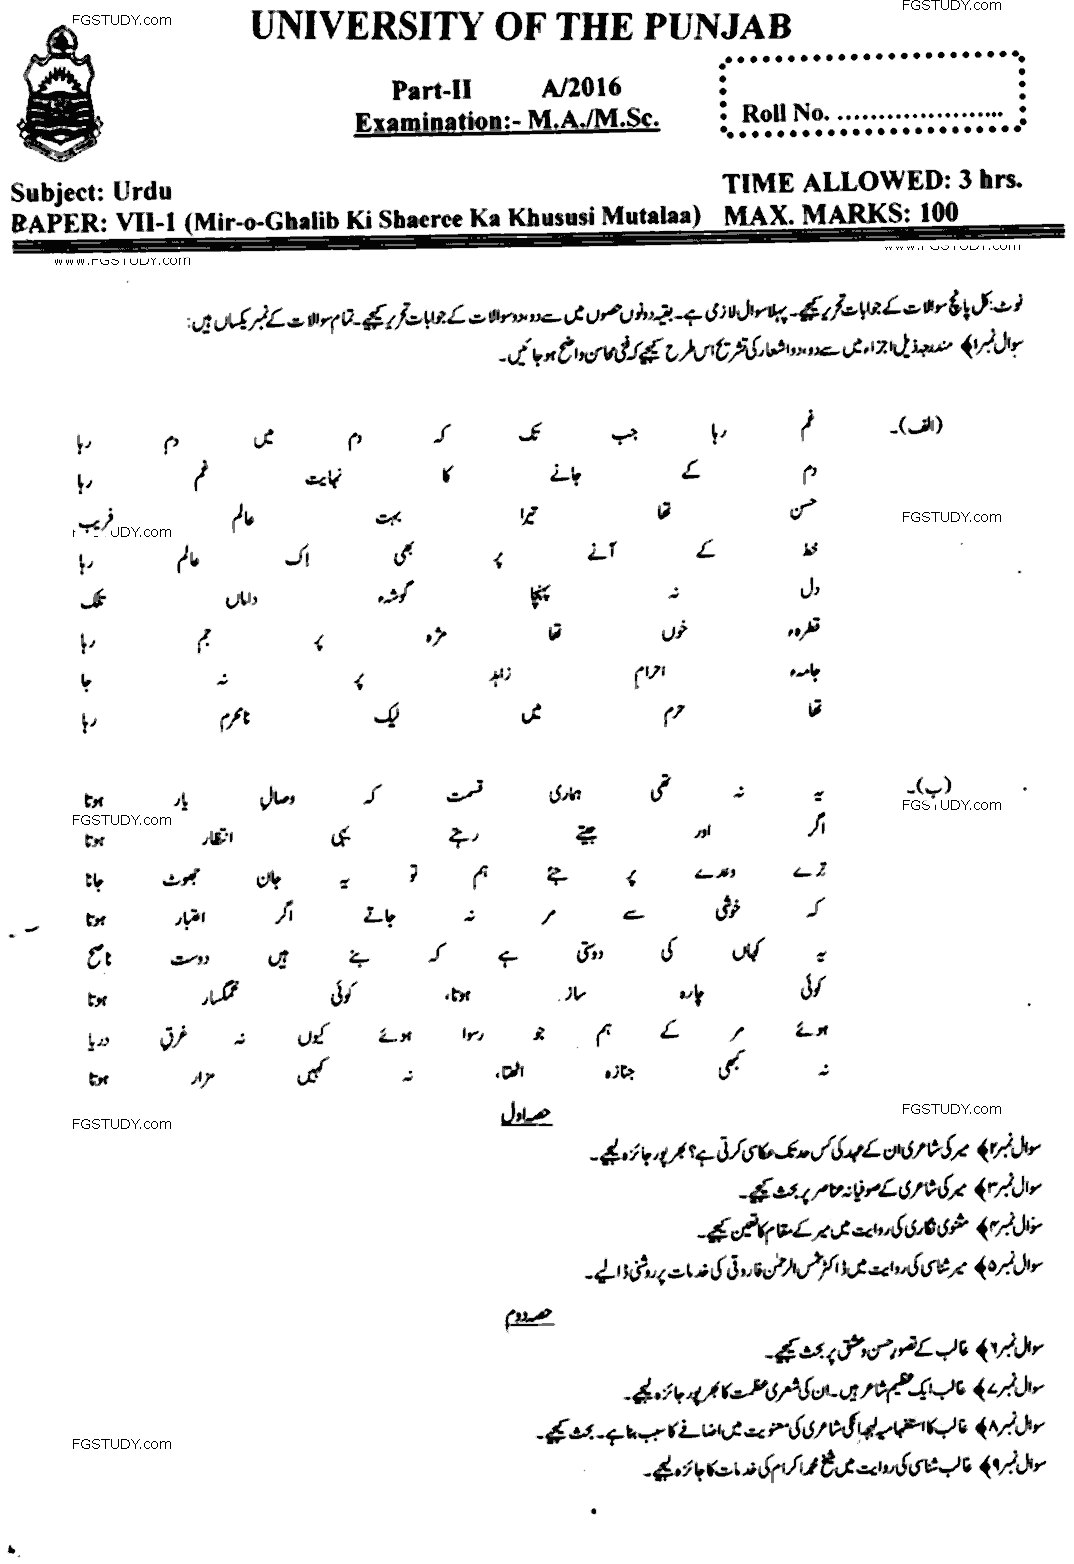 FGSTUDY.com
FGSTUDY.com
UNIVERSITY OF THE PUNJAB
Part-II A/2016
Examination:- M.A./M.Sc.
Roll No. ........................
Subject: Urdu
TIME ALLOWED: 3 hrs.
PAPER: VII-1 (Mir-o-Ghalib Ki Shaeree Ka Khususi Mutalaa)
MAX. MARKS: 100
www.FGSTUDY.com
www.FGSTUDY.com
نوٹ: کل پانچ سوالات کے جوابات تحریر کیجیے۔ پہلا سوال لازمی ہے۔ بقیہ دونوں حصوں میں سے دو، دو سوالات کے جوابات تحریر کیجیے۔ تمام سوالات کے نمبر یکساں ہیں:
سوال نمبر۱﴾ مندرجہ ذیل اجزاء میں سے دو، دو اشعار کی تشریح اس طرح کیجیے کہ فنی محاسن واضح ہو جائیں۔
(الف)۔ غم رہا جب تک کہ دم میں دم رہا
دم کے جانے کا نہایت غم رہا
حسن تھا تیرا بہت عالم فریب
FGSTUDY.com
FGSTUDY.com
خط کے آنے پر بھی اک عالم رہا
دل نہ پہنچا گوشہء داماں تلک
قطرہء خوں تھا مژہ پر جم رہا
جامہء احرامِ زاہد پر نہ جا
تھا حرم میں لیک نامحرم رہا
(ب)۔ یہ نہ تھی ہماری قسمت کہ وصالِ یار ہوتا
FGSTUDY.com
FGSTUDY.com
اگر اور جیتے رہتے یہی انتظار ہوتا
ترے وعدے پر جئے ہم تو یہ جان جھوٹ جانا
کہ خوشی سے مر نہ جاتے اگر اعتبار ہوتا
یہ کہاں کی دوستی ہے کہ بنے ہیں دوست ناصح
کوئی چارہ ساز ہوتا، کوئی غمگسار ہوتا
ہوئے مر کے ہم جو رسوا ہوئے کیوں نہ غرقِ دریا
نہ کبھی جنازہ اٹھتا، نہ کہیں مزار ہوتا
حصہ اول
FGSTUDY.com
FGSTUDY.com
سوال نمبر۲﴾ میر کی شاعری ان کے عہد کی کس حد تک عکاسی کرتی ہے؟ بھرپور جائزہ لیجیے۔
سوال نمبر۳﴾ میر کی شاعری کے صوفیانہ عناصر پر بحث کیجیے۔
سوال نمبر۴﴾ مثنوی نگاری کی روایت میں میر کے مقام کا تعین کیجیے۔
سوال نمبر۵﴾ میر شناسی کی روایت میں ڈاکٹر شمس الرحمٰن فاروقی کی خدمات پر روشنی ڈالیے۔
حصہ دوم
سوال نمبر۶﴾ غالب کے تصورِ حسن و عشق پر بحث کیجیے۔
سوال نمبر۷﴾ غالب ایک عظیم شاعر ہیں۔ ان کی شعری عظمت کا بھرپور جائزہ لیجیے۔
سوال نمبر۸﴾ غالب کا استفہامیہ لہجہ انکی شاعری کی معنویت میں اضافے کا سبب بنا ہے۔ بحث کیجیے۔
FGSTUDY.com
سوال نمبر۹﴾ غالب شناسی کی روایت میں شیخ محمد اکرام کی خدمات کا جائزہ لیجیے۔